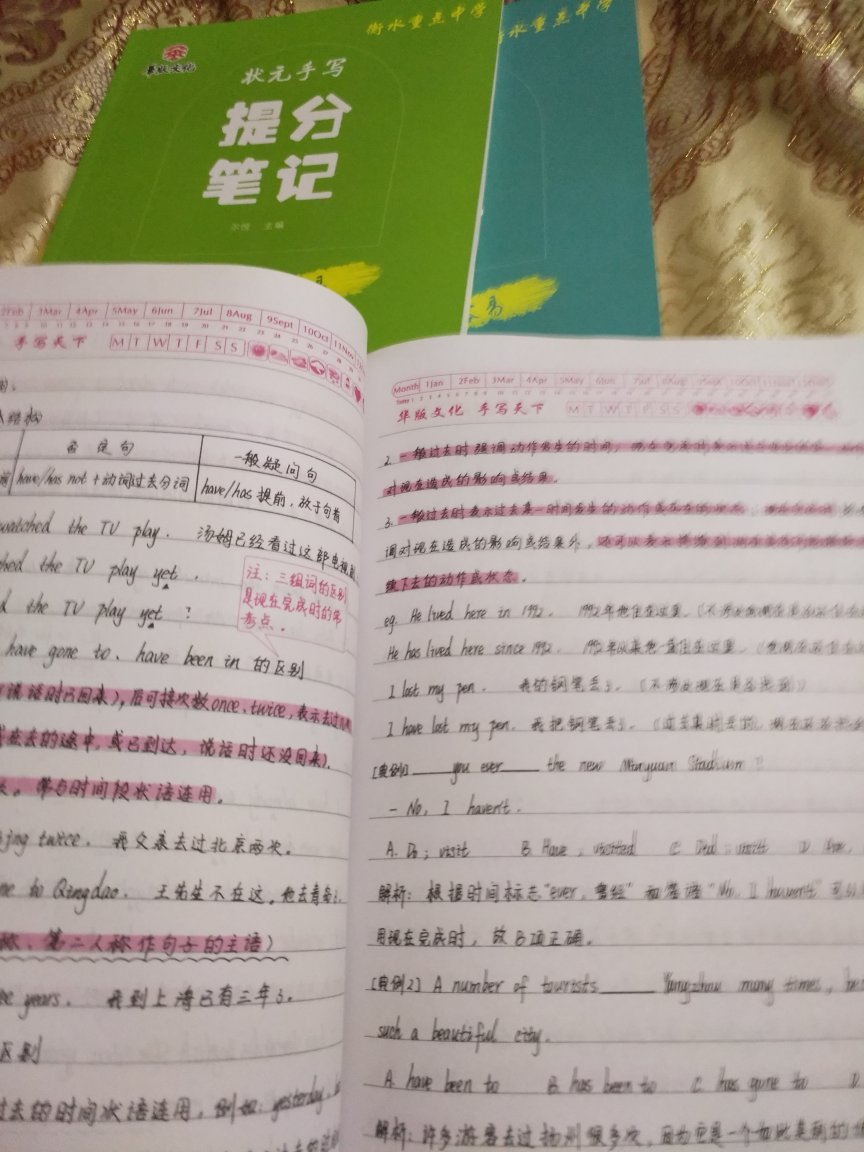 衡水重点中学
水重点中学
状元手写
提分
笔记
主编
2Feb 3Mar 4Apr 5May 6Jun 7Jul 8Aug 9Sept 10Oct 11Nov
手写天下 M T W T F S S
本结构
否定句 一般疑问句
have/has not +动词过去分词 have/has 提前，放于句首
watched the TV play. 汤姆已经看过这部电视剧
hed the TV play yet.
d the TV play yet ?
注：三组词的区别
是现在完成时的常
考点。
have gone to、have been in 的区别
(说话时已回来)，后可接次数once、twice，表示去过几
或在去的途中，或已到达，说话时还没回来)。
。常与时间段状语连用。
jing twice. 我父亲去过北京两次。
ne to Qingdao. 王先生不在这，他去青岛了。
称、第二人称作句子的主语)
ee years. 我到上海已有三年了。
区别
过去的时间状语连用，例如：yesterday、
Month 1Jan 2Feb 3Mar 4Apr 5May 6Jun 7Jul 8Aug
华版文化 手写天下 M T W T F S S
2. 一般过去时强调动作发生的时间；
对现在造成的影响或结果。
3. 一般过去时表示过去某一时间发生的动作或存在的状态，
调对现在造成的影响或结果外，还可以表示
续下去的动作或状态。
eg. He lived here in 1992. 1992年他住在这里。
He has lived here since 1992. 1992年以来他一直住在这里。
I lost my pen. 我的钢笔丢了。
I have lost my pen. 我把钢笔丢了。
[典例1] ____ you ever ____ the new Stadium ?
- No, I haven't.
A. Do; visit B. Have; visited C. Did; visit D.
解析：根据时间标志“ever，曾经”和答语“No, I haven't”可
用现在完成时，故B项正确。
[典例2] A number of tourists ____ Yangzhou many times,
such a beautiful city.
A. have been to B. has been to C. has gone to D.
解析：许多游客去过扬州很多次，因为它是一个如此美丽的